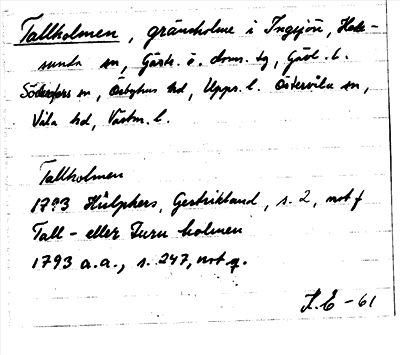 Tallholmen, gränsholme i Ingsjön, Hede-
sunda sn, Gästr. ö. doms. tg, Gävl. l.
Söderfors sn, Örbyhus hd, Upps. l. Östervåla sn,
Våla hd, Västm. l.
Tallholmen
1793 Hülphers, Gestrikland, s. 2, not f
Tall- eller Furu holmen
1793 a.a., s. 247, not q.
S.E -61